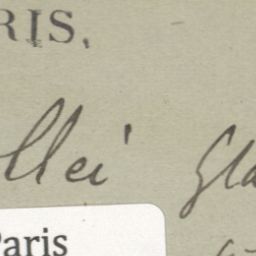 RIS.
llei Gla
Paris